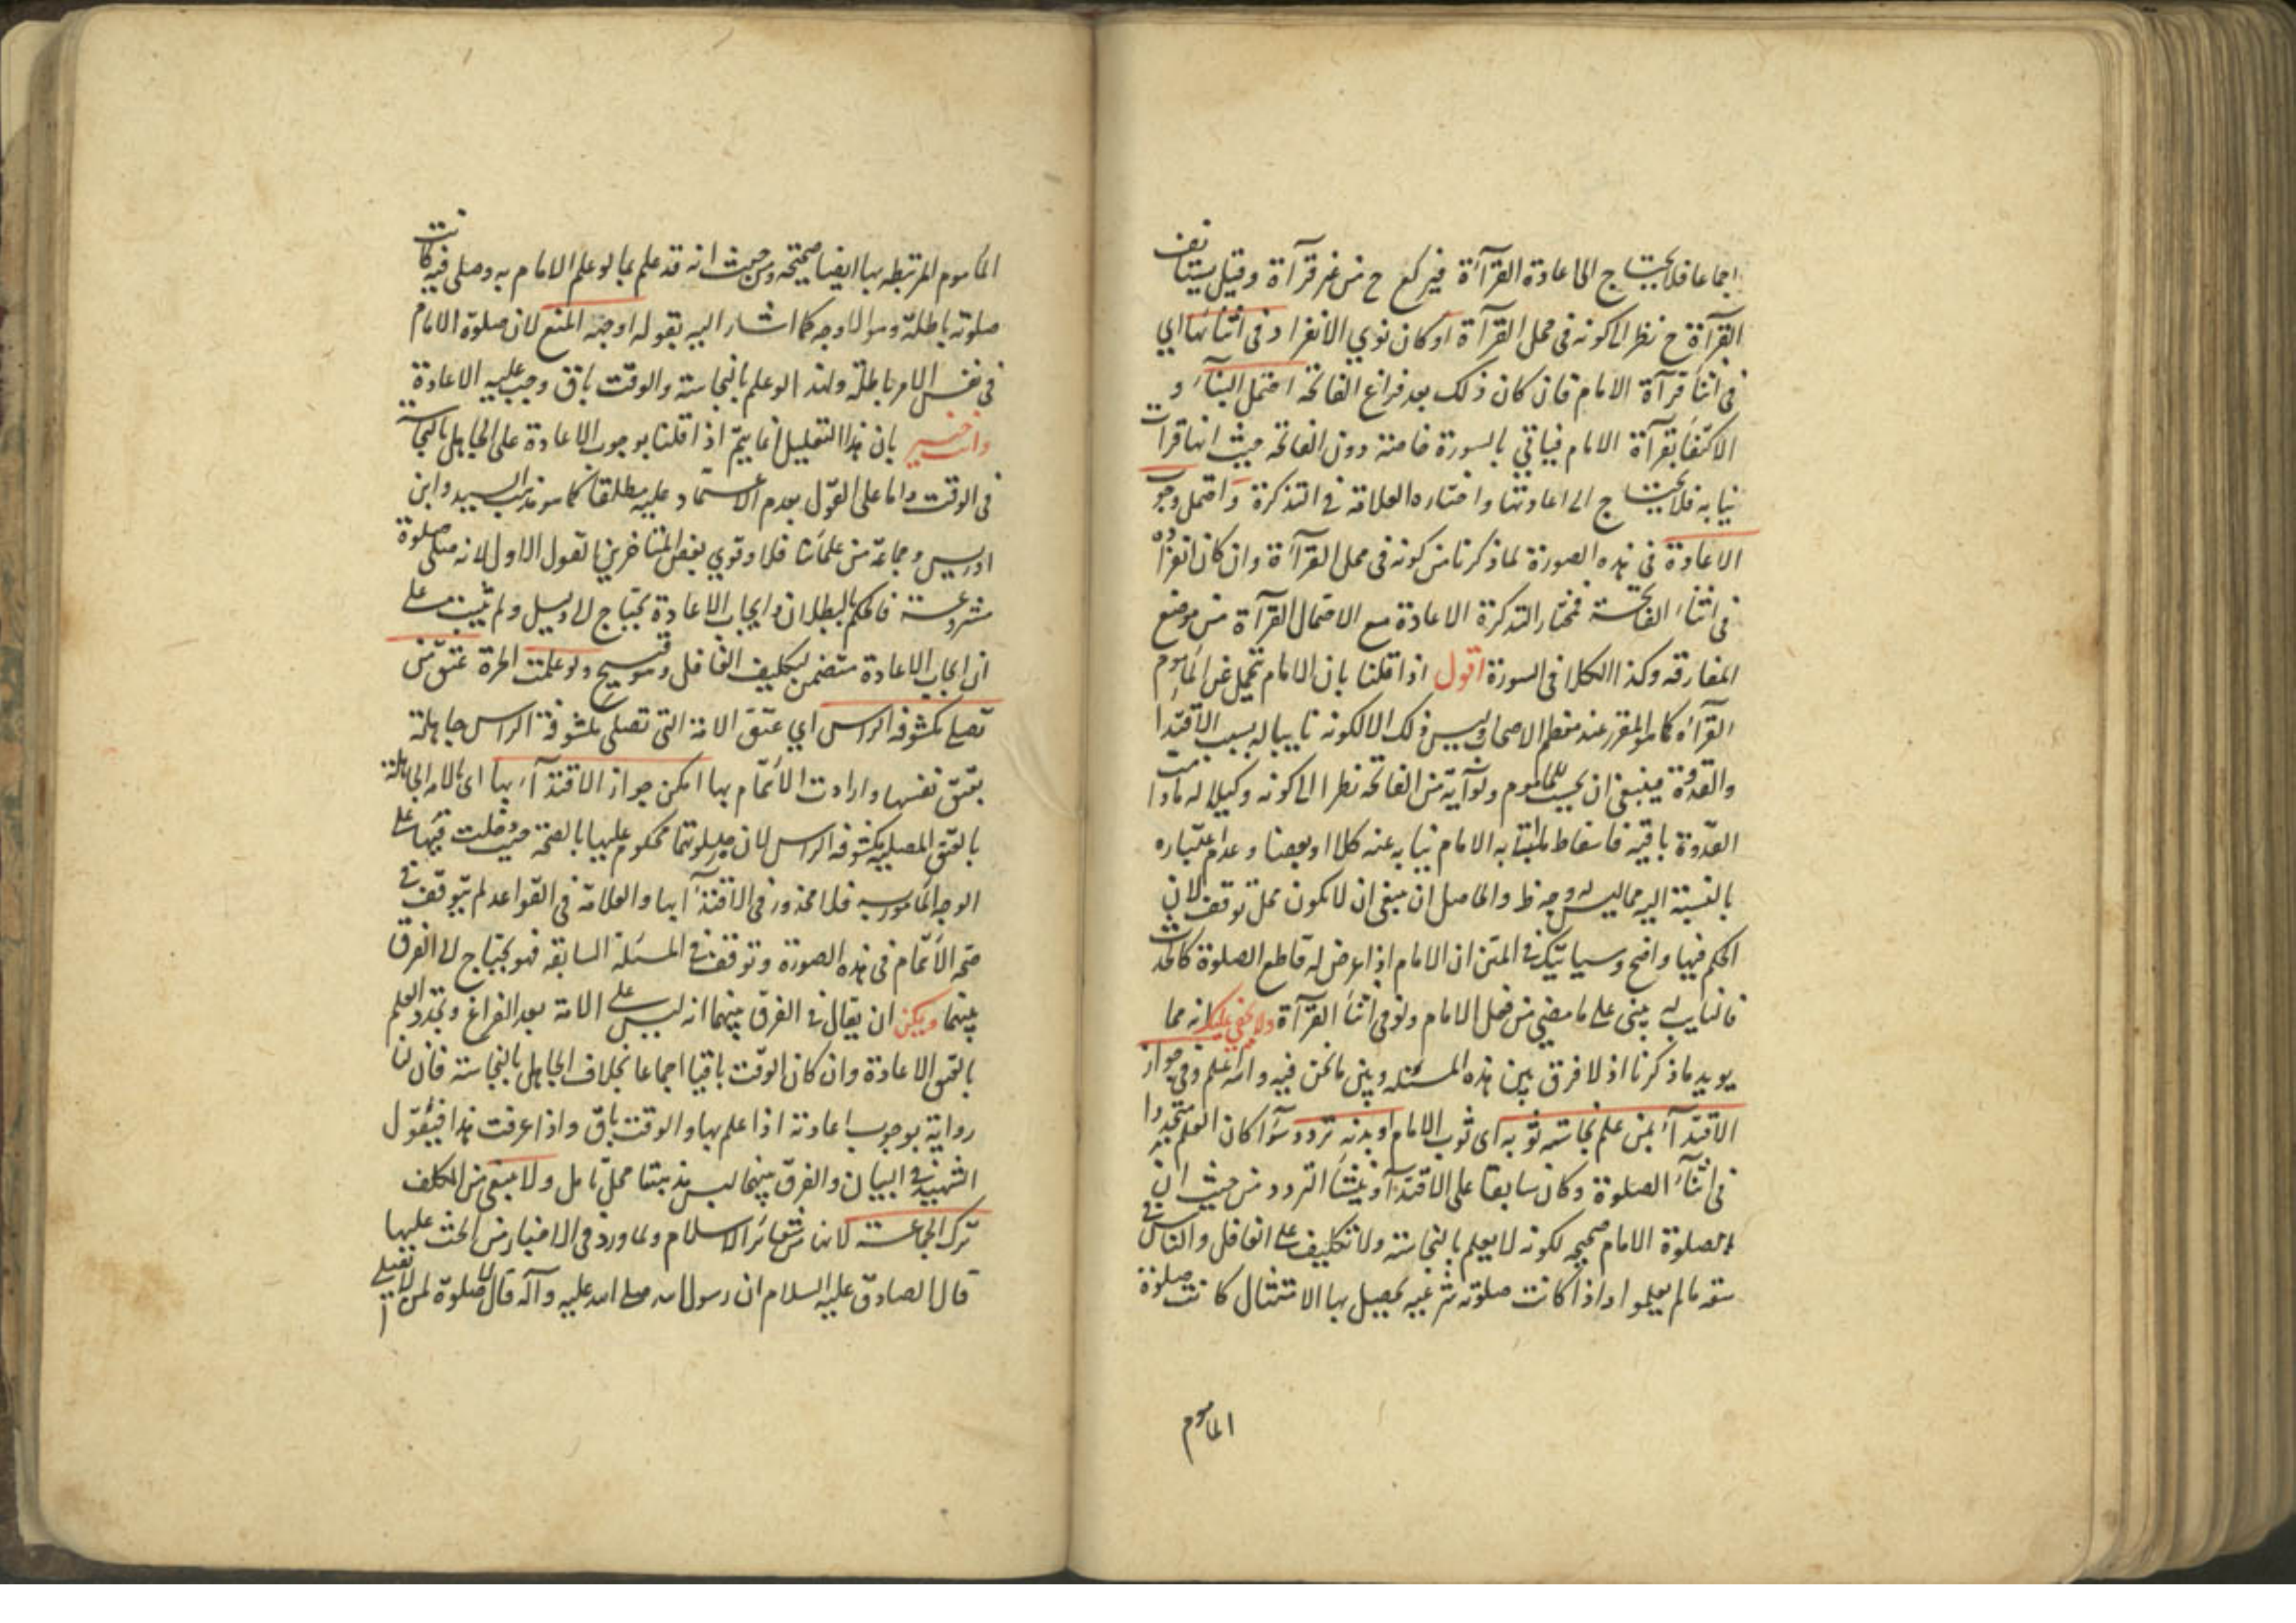 اجماعا فلا يحتاج الى اعادة القرآءة فيركع ح من غير قرآءة وقيل يستانف
القرآءة ح نظرا الى كونه فى محل القرآءة او كان نوي الانفراد فى اثنائها اي
فى اثنآء قرآءة الامام فان كان ذلك بعد فراغ الفاتحة احتمل البنآء و
الاكتفآء بقرآءة الامام فياتي بالسورة خاصة دون الفاتحة حيث انها قرات
نيابه فلا يحتاج الى اعادتها واختاره العلامة في التذكرة و احتمل وجوب
الاعادة فى هذه الصورة لما ذكرنا من كونه فى محل القرآءة وان كان انفراده
فى اثنآء الفاتحة فمختار التذكرة الاعادة مع الاحتمال القرآءة من موضع
المفارقه وكذا الكلام فى السورة اقول اذا قلنا بان الامام تحمل عن المأموم
القرآءة كما هو المقرر عند معظم الاصحاب وليس ذلك الا لكونه نايبا له بسبب الاقتدآ
والقدوة فينبغي ان يحسب للماموم ولو آية من الفاتحة نظرا الى كونه وكيلا له مادامت
القدوة باقية فاسقاط ما اتى به الامام نيابه عنه كلا او بعضا وعدم اعتباره
بالنسبة اليه مما ليس له وجه ظ والحاصل ان ينبغي ان لا يكون محل توقف لان
الحكم فيها واضح وسياتيك في المتن ان الامام اذا عرض له قاطع الصلوة كالحدث
فالنايب له يبني على ما مضي من فعل الامام ولو فى اثنآء القرآءة ولا يخفي عليك انه مما
يويد ما ذكرنا اذ لا فرق بين هذه المسئله وبين ما نحن فيه والله اعلم وفي جواز
الاقتدآء بمن علم نجاسة ثوبه اى ثوب الامام او بدنه تردد سوآء كان العلم متجددا
فى اثنآء الصلوة وكان سابقا على الاقتدآء ومنشأ التردد من حيث ان
الصلوة الامام صحيحه لكونه لا يعلم بالنجاسة ولا تكليف على الغافل والناس في
سعة ما لم يعلموا واذا كانت صلوته شرعيه يحصل بها الامتثال كانت صلوة
الماموم
الماموم المرتبطه بها ايضا صحيحة ومن حيث انه قد علم بما لو علم الامام به وصلى فيه كانت
صلوته باطلة وهو الاوجه كما اشار اليه بقوله اوجهه المنع لان صلوة الامام
فى نفس الامر باطلة ولهذا لو علم بالنجاسة والوقت باق وجب عليه الاعادة
وانت خبير بان هذا التعليل انما يتم اذا قلنا بوجوب الاعادة على الجاهل بالنجاسة
فى الوقت واما على القول بعدم الاعتماد عليه مطلقا كما هو مذهب السيد وابن
ادريس وجماعة من علمآئنا فلا وقوي بعض المتاخرين القول الاول لانه صلى صلوة
مشروعة فالحكم بالبطلان وايجاب الاعادة يحتاج الى دليل ولم يثبت على
ان ايجاب الاعادة متضمن لتكليف الغافل وهو قبيح ولو علمت الحرة عتق من
تصلي مكشوفة الراس اي عتق الامة التى تصلي مكشوفة الراس جاهلة
بعتق نفسها وارادت الائتمام بها امكن جواز الاقتدآء بها اى بالامة الجاهلة
بالعتق المصليه مكشوفة الراس لان صلوتها محكوم عليها بالصحة حيث دخلت فيها على
الوجه المامور به فلا محذور فى الاقتدآء بها والعلامة فى القواعد لم يتوقف في
صحة الائتمام فى هذه الصورة وتوقف في المسئلة السابقه فهو يحتاج الى الفرق
بينهما ويمكن ان يقال في الفرق بينهما انه ليس على الامة بعد الفراغ وتجدد العلم
بالعتق الاعادة وان كان الوقت باقيا اجماعا بخلاف الجاهل بالنجاسة فان لنا
رواية بوجوب اعادته اذا علم بها والوقت باق واذا عرفت هذا فيقول
الشهيد في البيان والفرق بينهما ليس مذهبنا محل تامل ولا ينبغي من المكلف
ترك الجماعة لانها من شعائر الاسلام ولما ورد فى الاخبار من الحث عليها
قال الصادق عليه السلام ان رسول الله صلى الله عليه وآله قال لا صلوة لمن لا يصلي